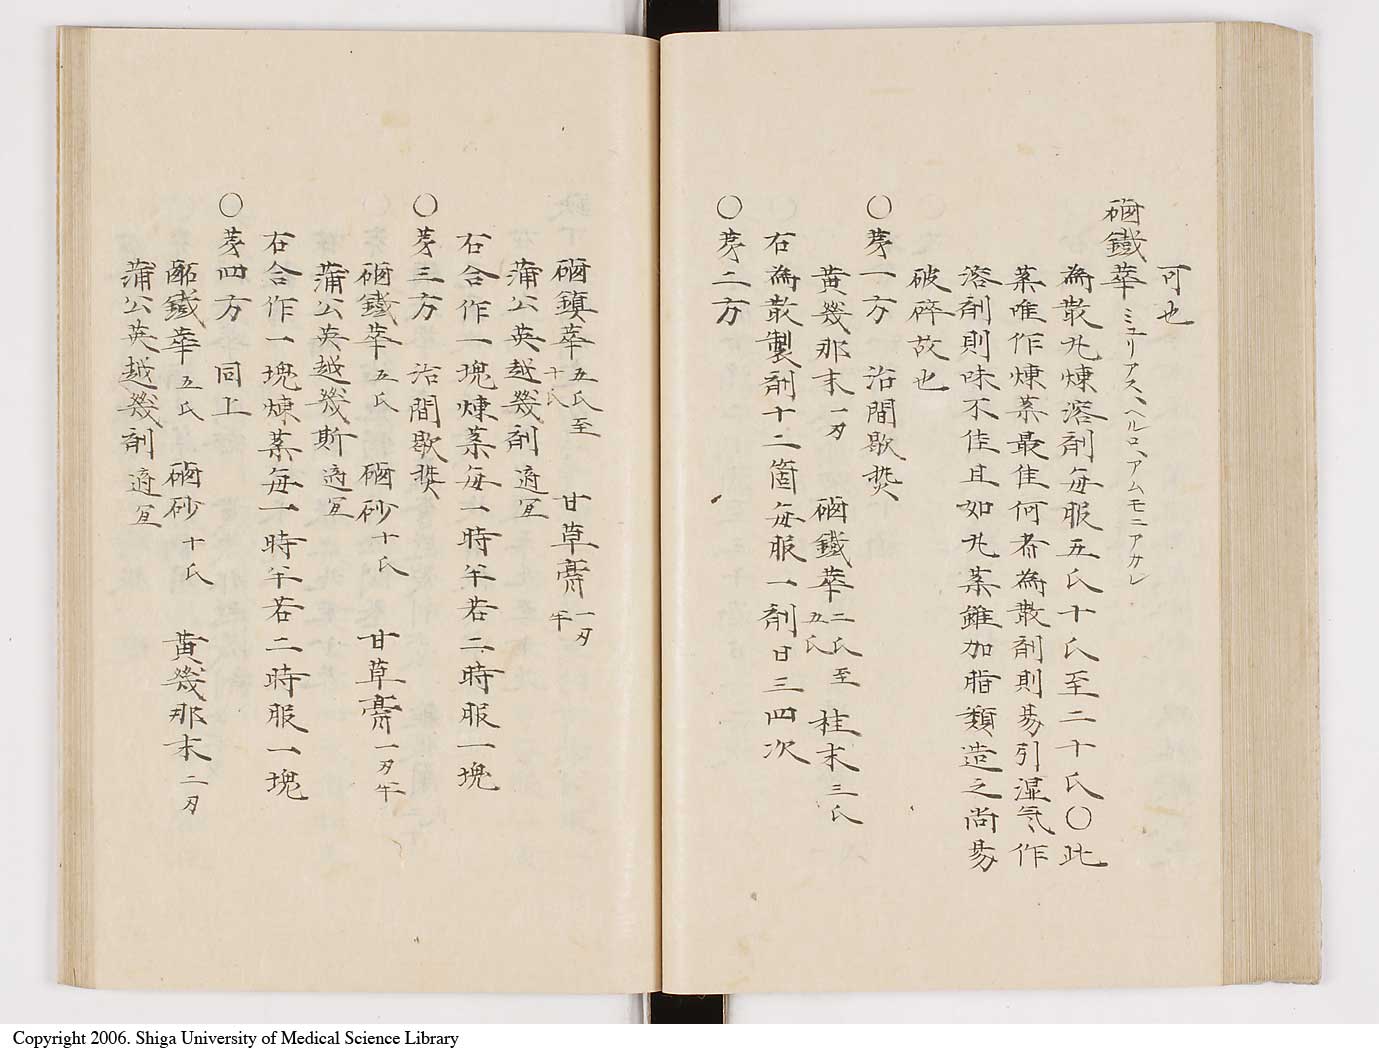 可也
硇鐵華 ミュリアス、ヘルロ、アムモニアカレ
為散丸煉溶剤毎服五氏十氏至二十氏〇此
薬唯作煉薬最佳何者為散剤則易引湿気作
溶剤則味不佳且如丸薬雖加脂類造之尚易
破碎故也
〇第一方 治間歇熱
黄幾那末一刄 硇鐵華二氏至五氏 桂末三氏
右為散製剤十二箇毎服一剤日三四次
〇第二方
硇鎮華五氏至十氏 甘草膏一刄半
蒲公英越幾剤適宜
右合作一塊煉薬毎一時半若二時服一塊
〇第三方 治間歇熱
硇鐵華五氏 硇砂十氏 甘草膏一刄半
蒲公英越幾斯適宜
右合作一塊煉薬毎一時半若二時服一塊
〇第四方 同上
硇鐵華五氏 硇砂十氏 黄幾那末二刄
蒲公英越幾剤適宜
Copyright 2006. Shiga University of Medical Science Library